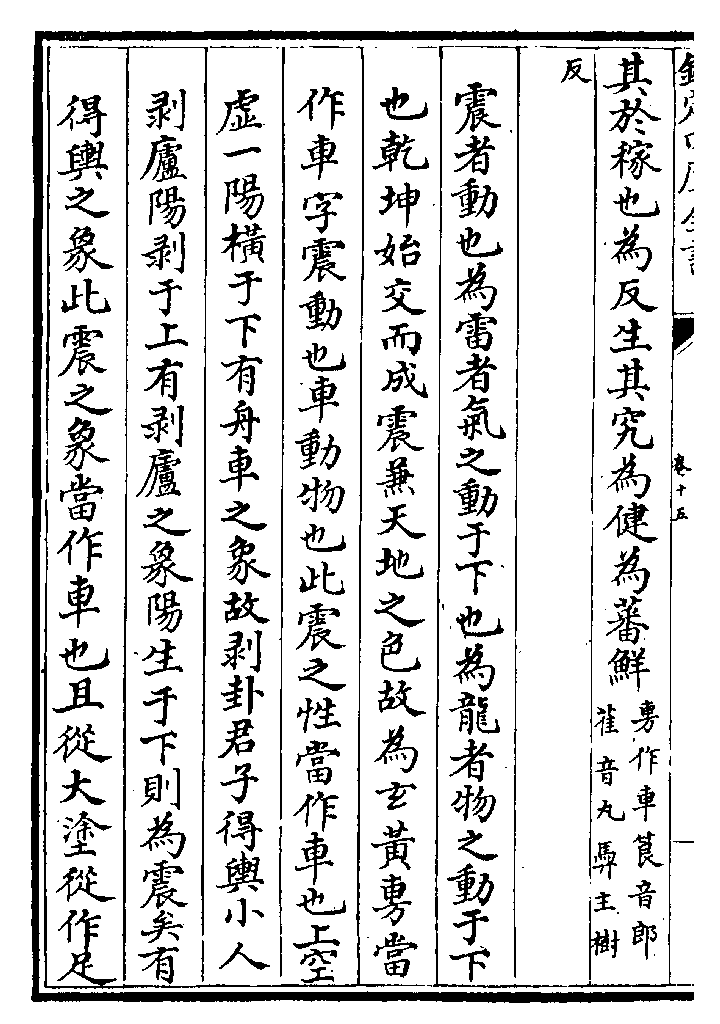 欽定四庫全書
卷十五
其於稼也為反生其究為健為蕃鮮旉作車莨音郎萑音丸馵主樹
反
震者動也為雷者氣之動于下也為龍者物之動于下
也乾坤始交而成震兼天地之色故為玄黃旉當
作車字震動也車動物也此震之性當作車也上空
虛一陽橫于下有舟車之象故剥卦君子得輿小人
剥廬陽剥于上有剥廬之象陽生于下則為震矣有
得輿之象此震之象當作車也且從大塗從作足